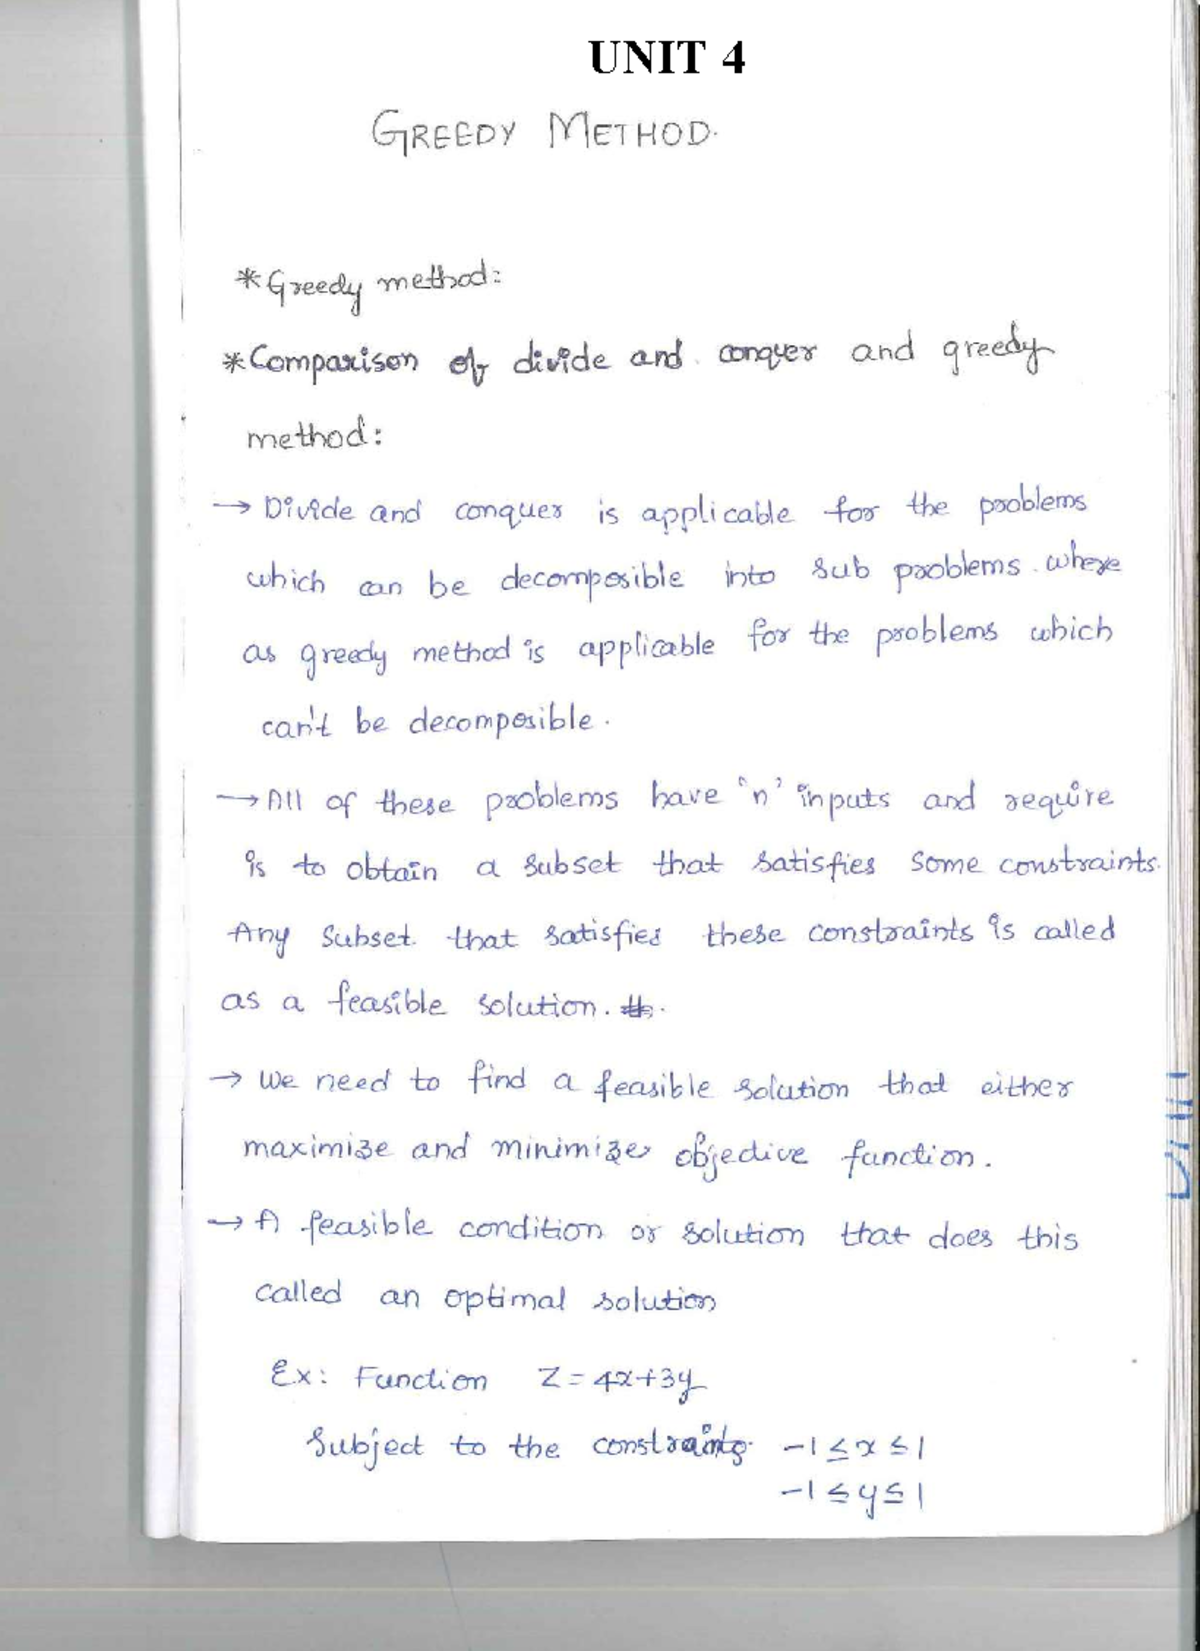 UNIT 4
GREEDY METHOD.
* Greedy method:
* Comparison of divide and conquer and greedy
method:
→ Divide and conquer is applicable for the problems
which can be decomposible into sub problems. where
as greedy method is applicable for the problems which
can't be decomposible.
→ All of these problems have 'n' inputs and require
is to obtain a subset that satisfies some constraints.
Any subset that satisfies these constraints is called
as a feasible solution.
→ We need to find a feasible solution that either
maximize and minimizes objective function.
→ A feasible condition or solution that does this
called an optimal solution
Ex: Function Z = 4x+3y
Subject to the constraints -1 ≤ x ≤ 1
-1 ≤ y ≤ 1